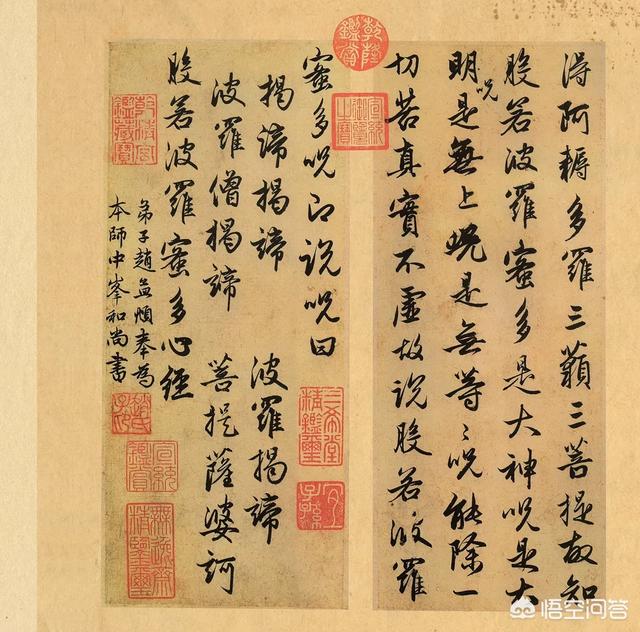 得阿耨多羅三藐三菩提故知
般若波羅蜜多是大神呪是大
明呪是無上呪是無等〻呪能除一
切苦真實不虛故說般若波羅
蜜多呪即說呪曰
揭諦揭諦 波羅揭諦
波羅僧揭諦 菩提薩婆訶
般若波羅蜜多心經
弟子趙孟頫奉為
本師中峯和尚書
乾隆鑑賞
宣統御覽之寶
三希堂精鑑璽
宜子孫
乾清宮鑑藏寶
宣統鑑賞
無逸齋精鑑璽
悟空问答